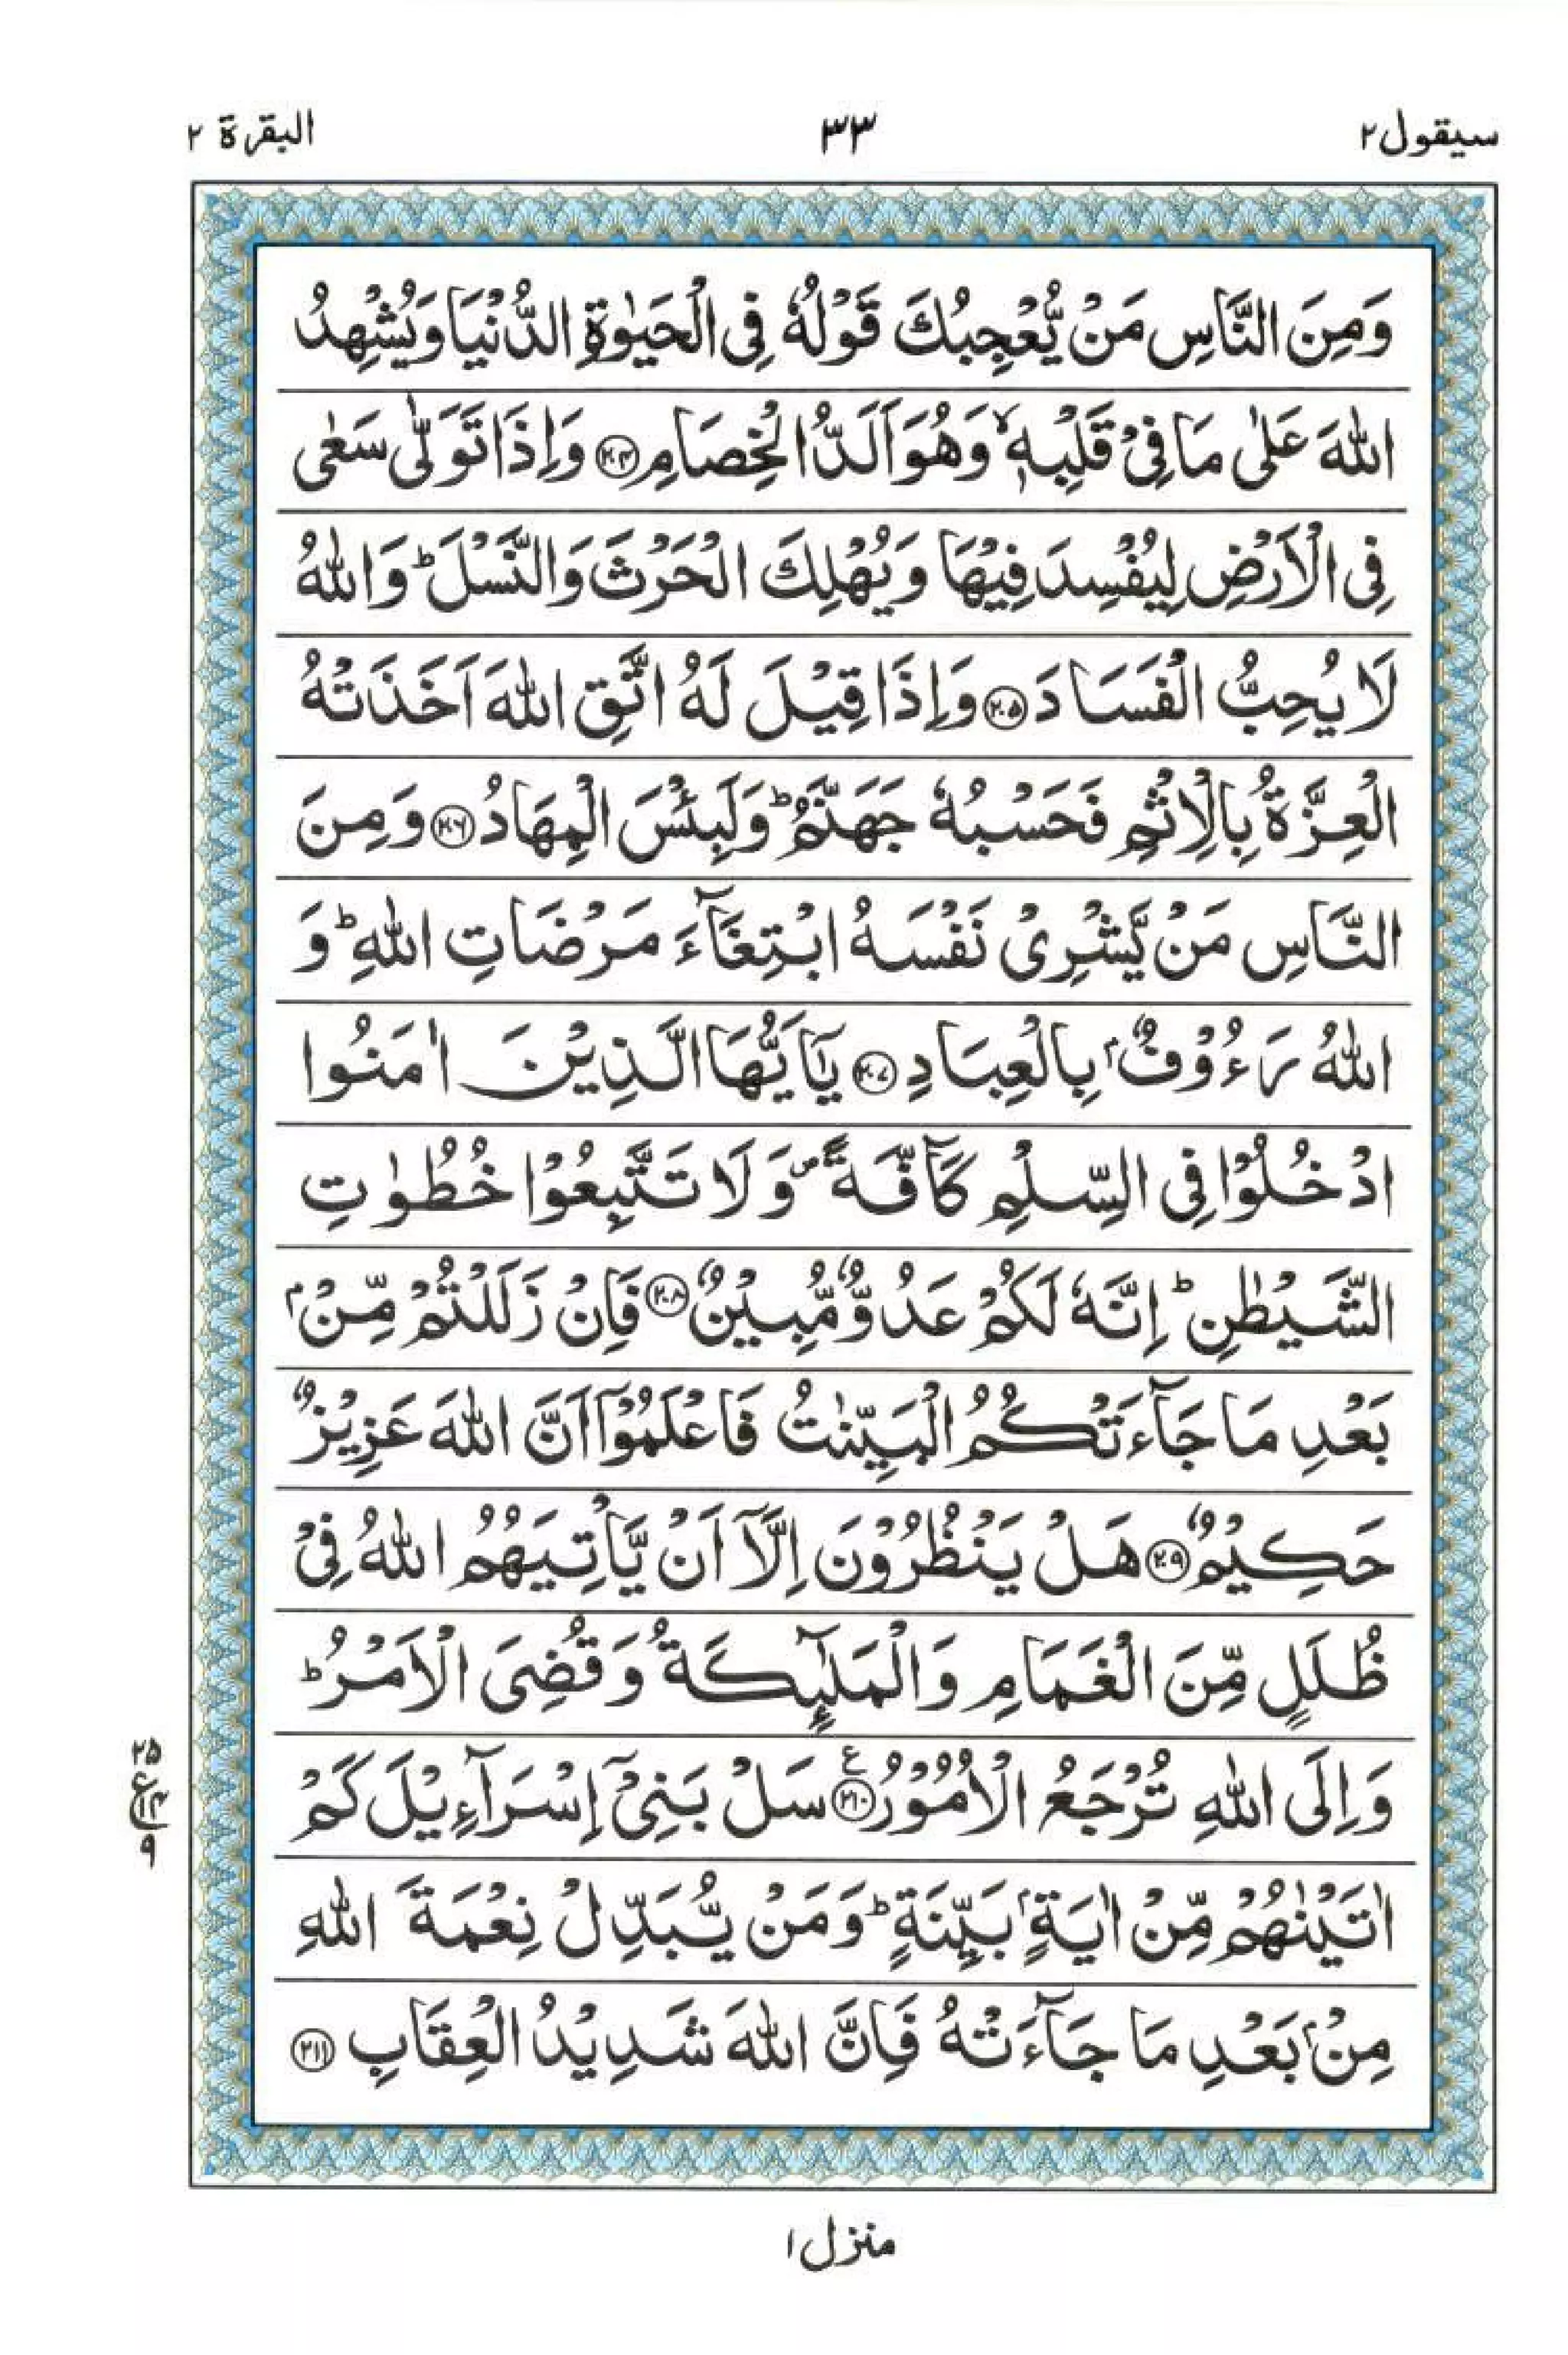 سيقول ٢
٣٣
البقرة ٢
وَمِنَ النَّاسِ مَنْ يُّعْجِبُكَ قَوْلُهٗ فِى الْحَيٰوةِ الدُّنْيَا وَيُشْهِدُ
اللّٰهَ عَلٰى مَا فِىْ قَلْبِهٖ ۙ وَهُوَ اَلَدُّ الْخِصَامِ ﴿٢٠٤﴾ وَاِذَا تَوَلّٰى سَعٰى
فِى الْاَرْضِ لِيُفْسِدَ فِيْهَا وَيُهْلِكَ الْحَرْثَ وَالنَّسْلَ ؕ وَاللّٰهُ
لَا يُحِبُّ الْفَسَادَ ﴿٢٠٥﴾ وَاِذَا قِيْلَ لَهُ اتَّقِ اللّٰهَ اَخَذَتْهُ
الْعِزَّةُ بِالْاِثْمِ فَحَسْبُهٗ جَهَنَّمُ ؕ وَلَبِئْسَ الْمِهَادُ ﴿٢٠٦﴾ وَمِنَ
النَّاسِ مَنْ يَّشْرِىْ نَفْسَهُ ابْتِغَآءَ مَرْضَاتِ اللّٰهِ ؕ وَ
اللّٰهُ رَءُوْفٌۢ بِالْعِبَادِ ﴿٢٠٧﴾ يٰۤاَيُّهَا الَّذِيْنَ اٰمَنُوا
ادْخُلُوْا فِى السِّلْمِ كَآفَّةً ۪ وَلَا تَتَّبِعُوْا خُطُوٰتِ
الشَّيْطٰنِ ؕ اِنَّهٗ لَكُمْ عَدُوٌّ مُّبِيْنٌ ﴿٢٠٨﴾ فَاِنْ زَلَلْتُمْ مِّنْۢ
بَعْدِ مَا جَآءَتْكُمُ الْبَيِّنٰتُ فَاعْلَمُوْۤا اَنَّ اللّٰهَ عَزِيْزٌ
حَكِيْمٌ ﴿٢٠٩﴾ هَلْ يَنْظُرُوْنَ اِلَّاۤ اَنْ يَّاْتِيَهُمُ اللّٰهُ فِىْ
ظُلَلٍ مِّنَ الْغَمَامِ وَالْمَلٰٓئِكَةُ وَقُضِىَ الْاَمْرُ ؕ
وَاِلَى اللّٰهِ تُرْجَعُ الْاُمُوْرُ ﴿٢١٠﴾ ع سَلْ بَنِىْۤ اِسْرَآءِيْلَ كَمْ
اٰتَيْنٰهُمْ مِّنْ اٰيَةٍۢ بَيِّنَةٍ ؕ وَمَنْ يُّبَدِّلْ نِعْمَةَ اللّٰهِ
مِنْۢ بَعْدِ مَا جَآءَتْهُ فَاِنَّ اللّٰهَ شَدِيْدُ الْعِقَابِ ﴿٢١١﴾
٢٥
ع
٩
منزل ١